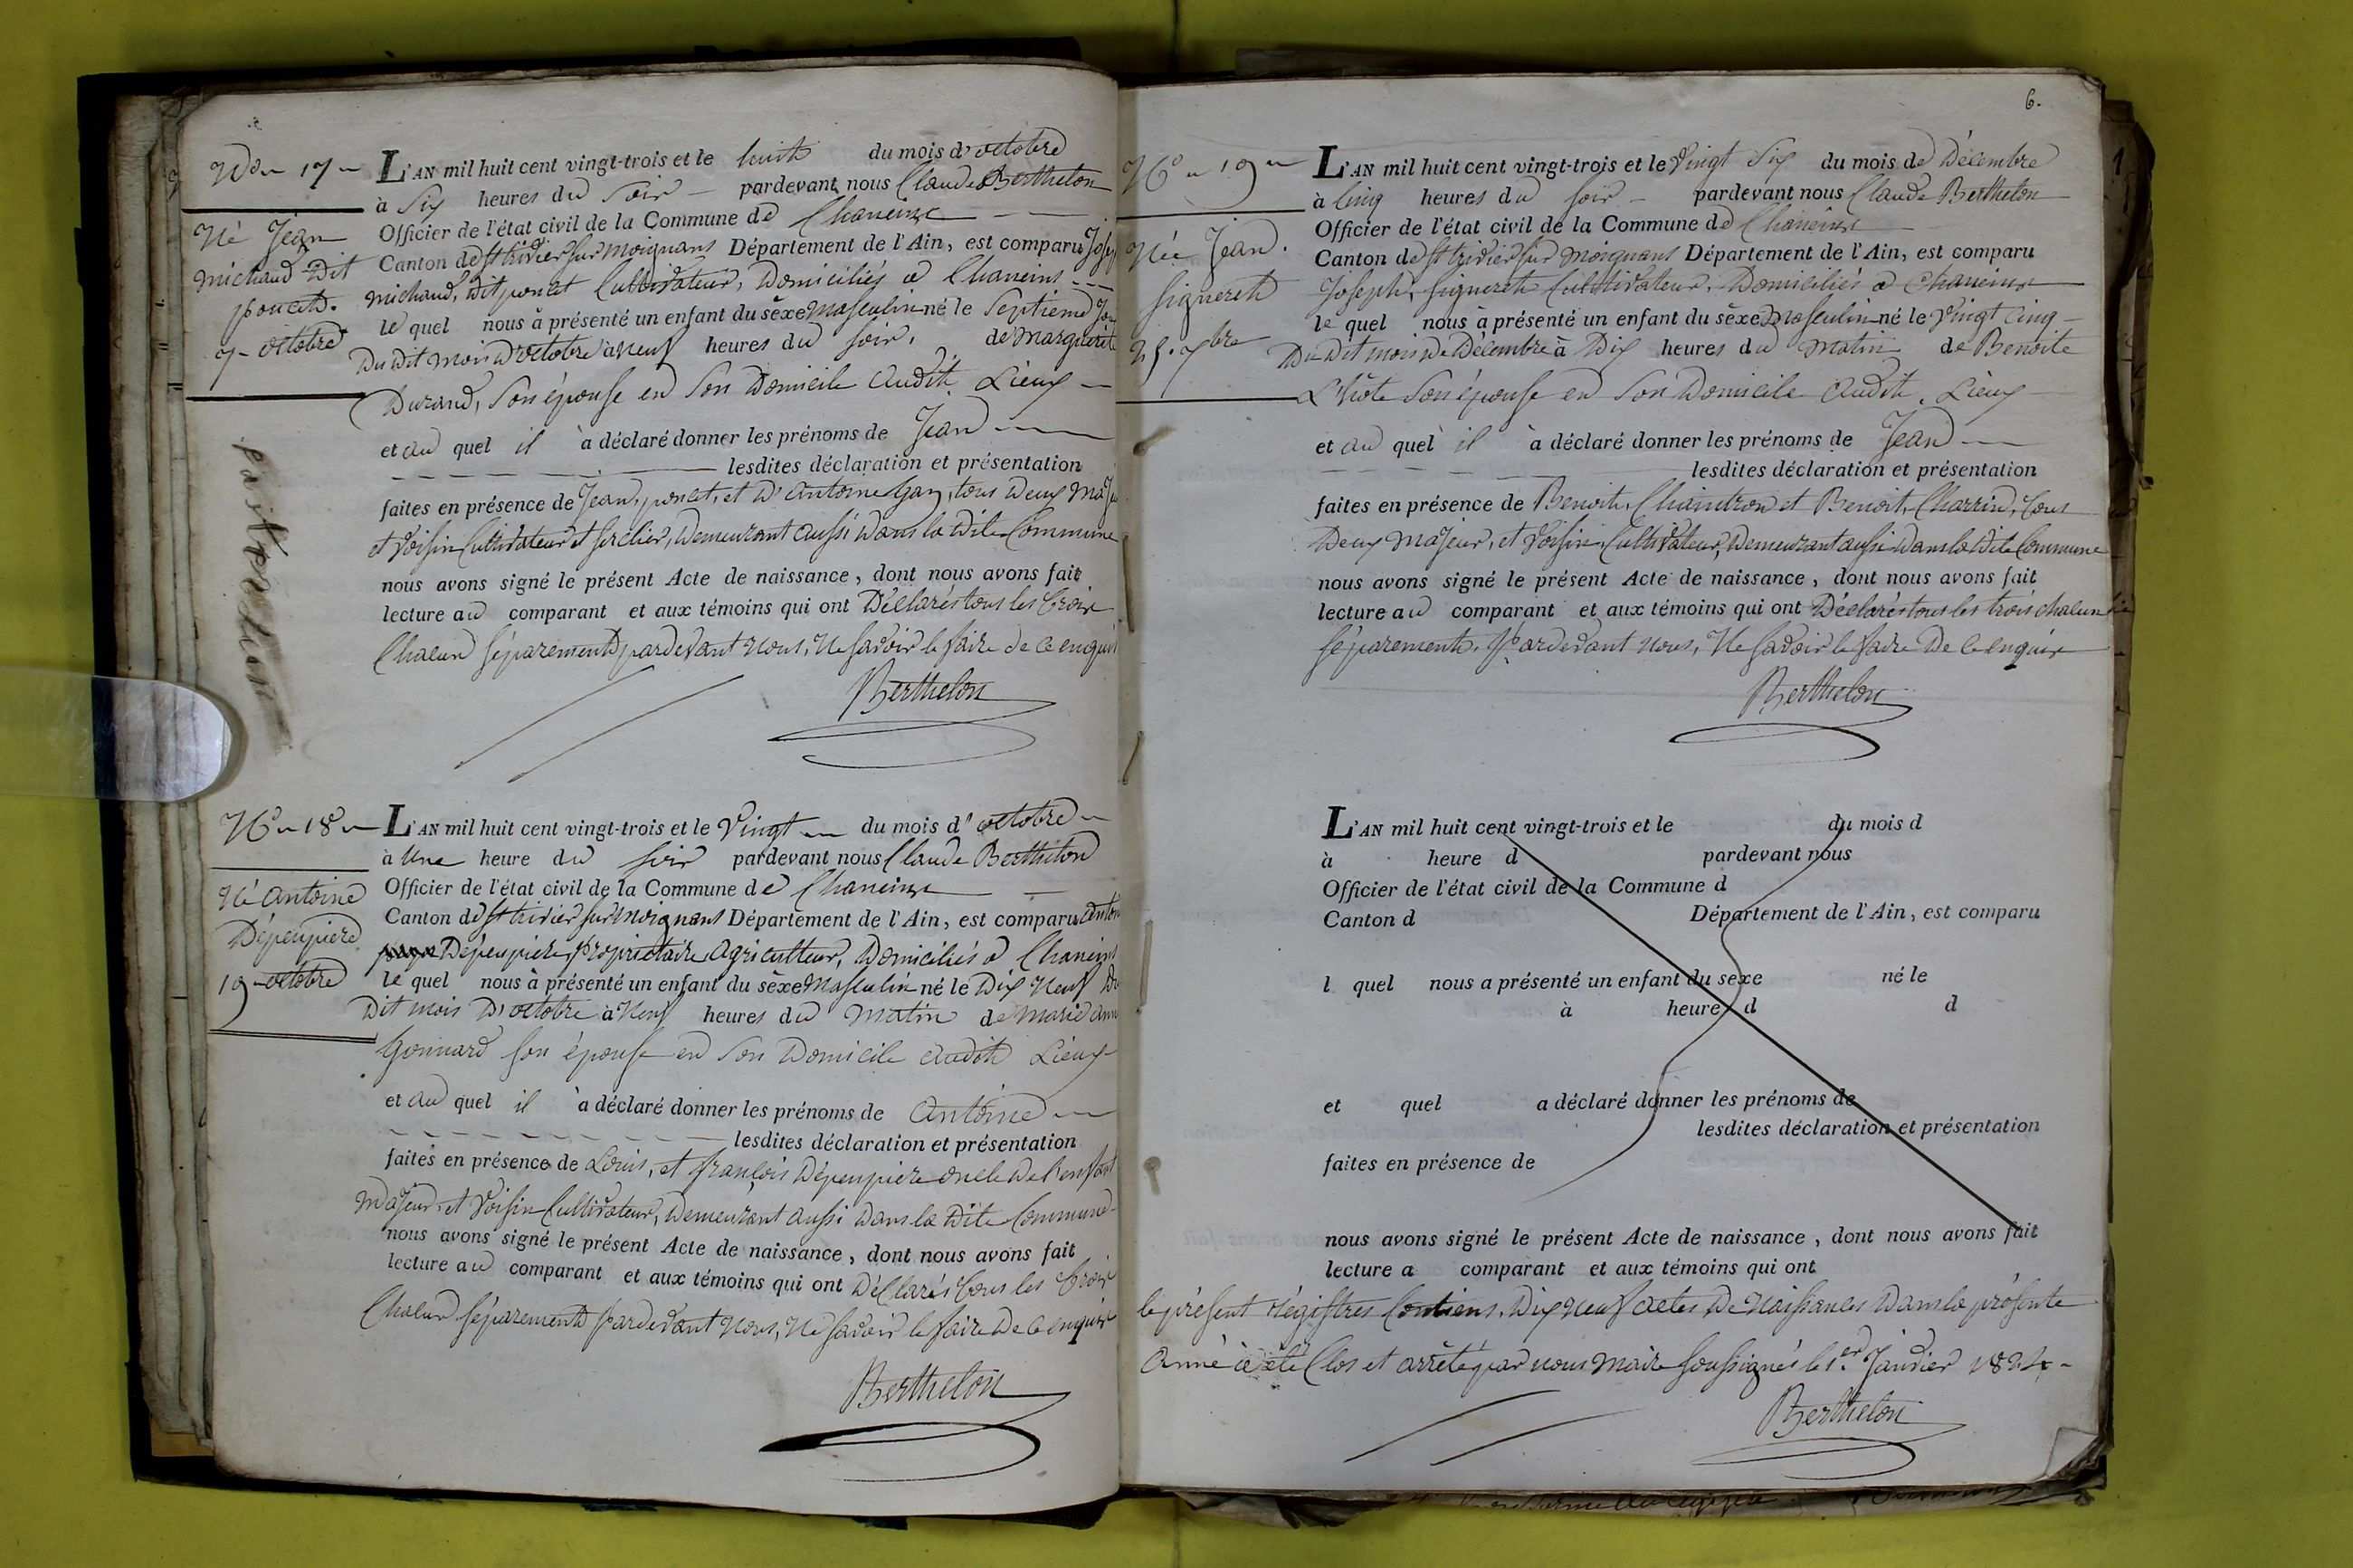 No 17
Né Jean
michaud Dit
poncet.
7 octobre
L'AN mil huit cent vingt-trois et le huit du mois d'octobre
à Six heures du Soir pardevant nous Claude Berthelon
Officier de l'état civil de la Commune de Chaneins
Canton de St trivier sur moignans Département de l'Ain, est comparu Josep
michaud, Dit poncet Cultivateur, Domiciliés à Chaneins
le quel nous à présenté un enfant du sèxe Masculin né le Septieme Jou
Du Dit mois D'octobre à Neuf heures du soir, de marguerite
Durand, Son épouse en Son Domicile Audit Lieux
et au quel il à déclaré donner les prénoms de Jean
lesdites déclaration et présentation
faites en présence de Jean, poncet, et D'Antoine Gay, tous Deux Maje
et Voisin Cultivateur et serclier, Demeurant aussi Dans la Dite Commune
nous avons signé le présent Acte de naissance, dont nous avons fait
lecture au comparant et aux témoins qui ont Déclarés tous les trois
Chacun séparement pardevant Nous, Ne savoir le faire de ce enquis
Berthelon
No 18
Né Antoine
Dépeupiere
19 octobre
L'AN mil huit cent vingt-trois et le Vingt du mois d'octobre
à Une heure du soir pardevant nous Claude Berthelon
Officier de l'état civil de la Commune de Chaneins
Canton de St trivier sur moignans Département de l'Ain, est comparu Antoi
Dépeupiere, propriétaire Agriculteur, Domiciliés à Chaneins
le quel nous à présenté un enfant du sèxe Masculin né le Dix Neuf Du
Dit mois D'octobre à Neuf heures du Matin de Marie Anne
Gonnard son épouse en Son Domicile Audit Lieux
et au quel il à déclaré donner les prénoms de Antoine
lesdites déclaration et présentation
faites en présence de Louis, et François Dépeupiere oncle De l'enfant
Majeur, et Voisin Cultivateur, Demeurant Aussi Dans la Dite Commune
nous avons signé le présent Acte de naissance, dont nous avons fait
lecture au comparant et aux témoins qui ont Déclarés tous les trois
Chacun séparement pardevant Nous, Ne savoir le faire De ce enquis
Berthelon
6.
No 19
Née Jean
Signeret
25. xbre
L'AN mil huit cent vingt-trois et le Vingt Six du mois de Décembre
à Cinq heures du soir pardevant nous Claude Berthelon
Officier de l'état civil de la Commune de Chaneins
Canton de St trivier sur Moignans Département de l'Ain, est comparu
Joseph, Signeret Cultivateur, Domiciliés à Chaneins
le quel nous à présenté un enfant du sèxe Masculin né le Vingt Cinq
Du Dit mois De Décembre à Dix heures du Matin de Benoite
L'hôte Son épouse en Son Domicile Audit Lieux
et au quel il à déclaré donner les prénoms de Jean
lesdites déclaration et présentation
faites en présence de Benoit, Chantron et Benoit, Charrin, tous
Deux Majeur, et Voisin, Cultivateur, Demeurant aussi Dans la Dite Commune
nous avons signé le présent Acte de naissance, dont nous avons fait
lecture au comparant et aux témoins qui ont Déclarés tous les trois chacun
séparement, Pardevant Nous, Ne savoir le faire De ce enquis
Berthelon
L'AN mil huit cent vingt-trois et le du mois d
à heure d pardevant nous
Officier de l'état civil de la Commune d
Canton d Département de l'Ain, est comparu
l quel nous a présenté un enfant du sexe né le
à heure d d
et quel a déclaré donner les prénoms de
lesdites déclaration et présentation
faites en présence de
nous avons signé le présent Acte de naissance, dont nous avons fait
lecture a comparant et aux témoins qui ont
le présent Régistres Contiens, Dix Neuf actes De Naissances Dans la présente
Anné à été Clos et arrêté par nous Maire soussignés le 1.er Janvier 1824
Berthelon